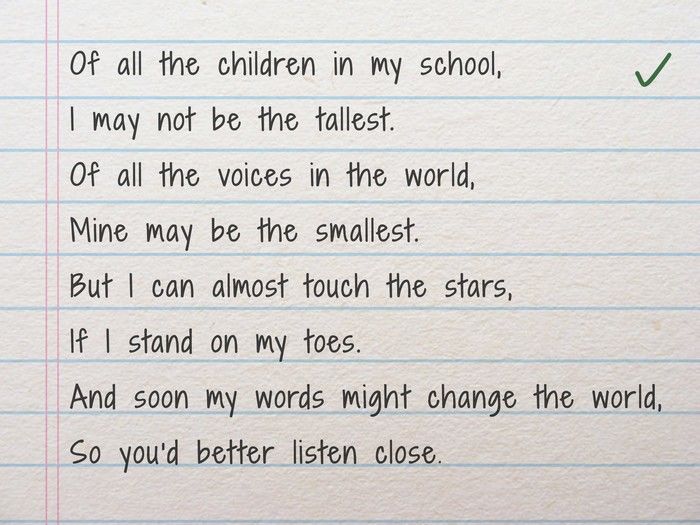 Of all the children in my school,
I may not be the tallest.
Of all the voices in the world,
Mine may be the smallest.
But I can almost touch the stars,
If I stand on my toes.
And soon my words might change the world,
So you'd better listen close.